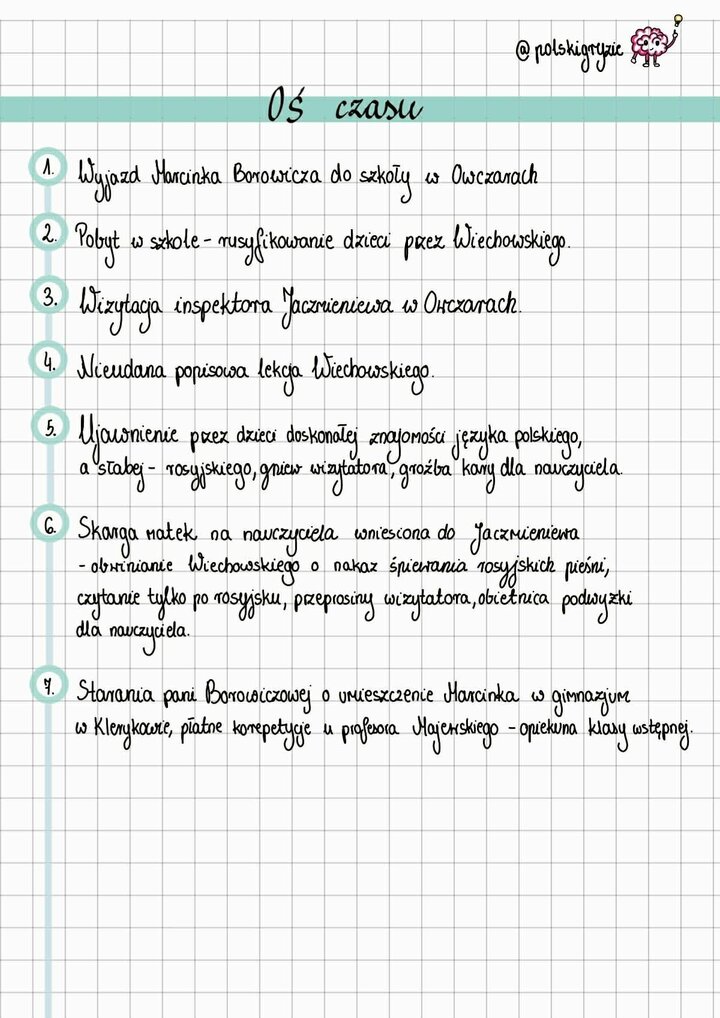 @polskigryzie
Oś czasu
1. Wyjazd Marcinka Borowicza do szkoły w Owczarach
2. Pobyt w szkole - rusyfikowanie dzieci przez Wiechowskiego.
3. Wizytacja inspektora Jaczmieniewa w Owczarach.
4. Nieudana popisowa lekcja Wiechowskiego.
5. Ujawnienie przez dzieci doskonałej znajomości języka polskiego,
a słabej - rosyjskiego, gniew wizytatora, groźba kary dla nauczyciela.
6. Skarga matek na nauczyciela wniesiona do Jaczmieniewa
- obwinianie Wiechowskiego o nakaz śpiewania rosyjskich pieśni,
czytanie tylko po rosyjsku, przeprosiny wizytatora, obietnica podwyżki
dla nauczyciela.
7. Starania pani Borowiczowej o umieszczenie Marcinka w gimnazjum
w Klerykowie, płatne korepetycje u profesora Majewskiego - opiekuna klasy wstępnej.